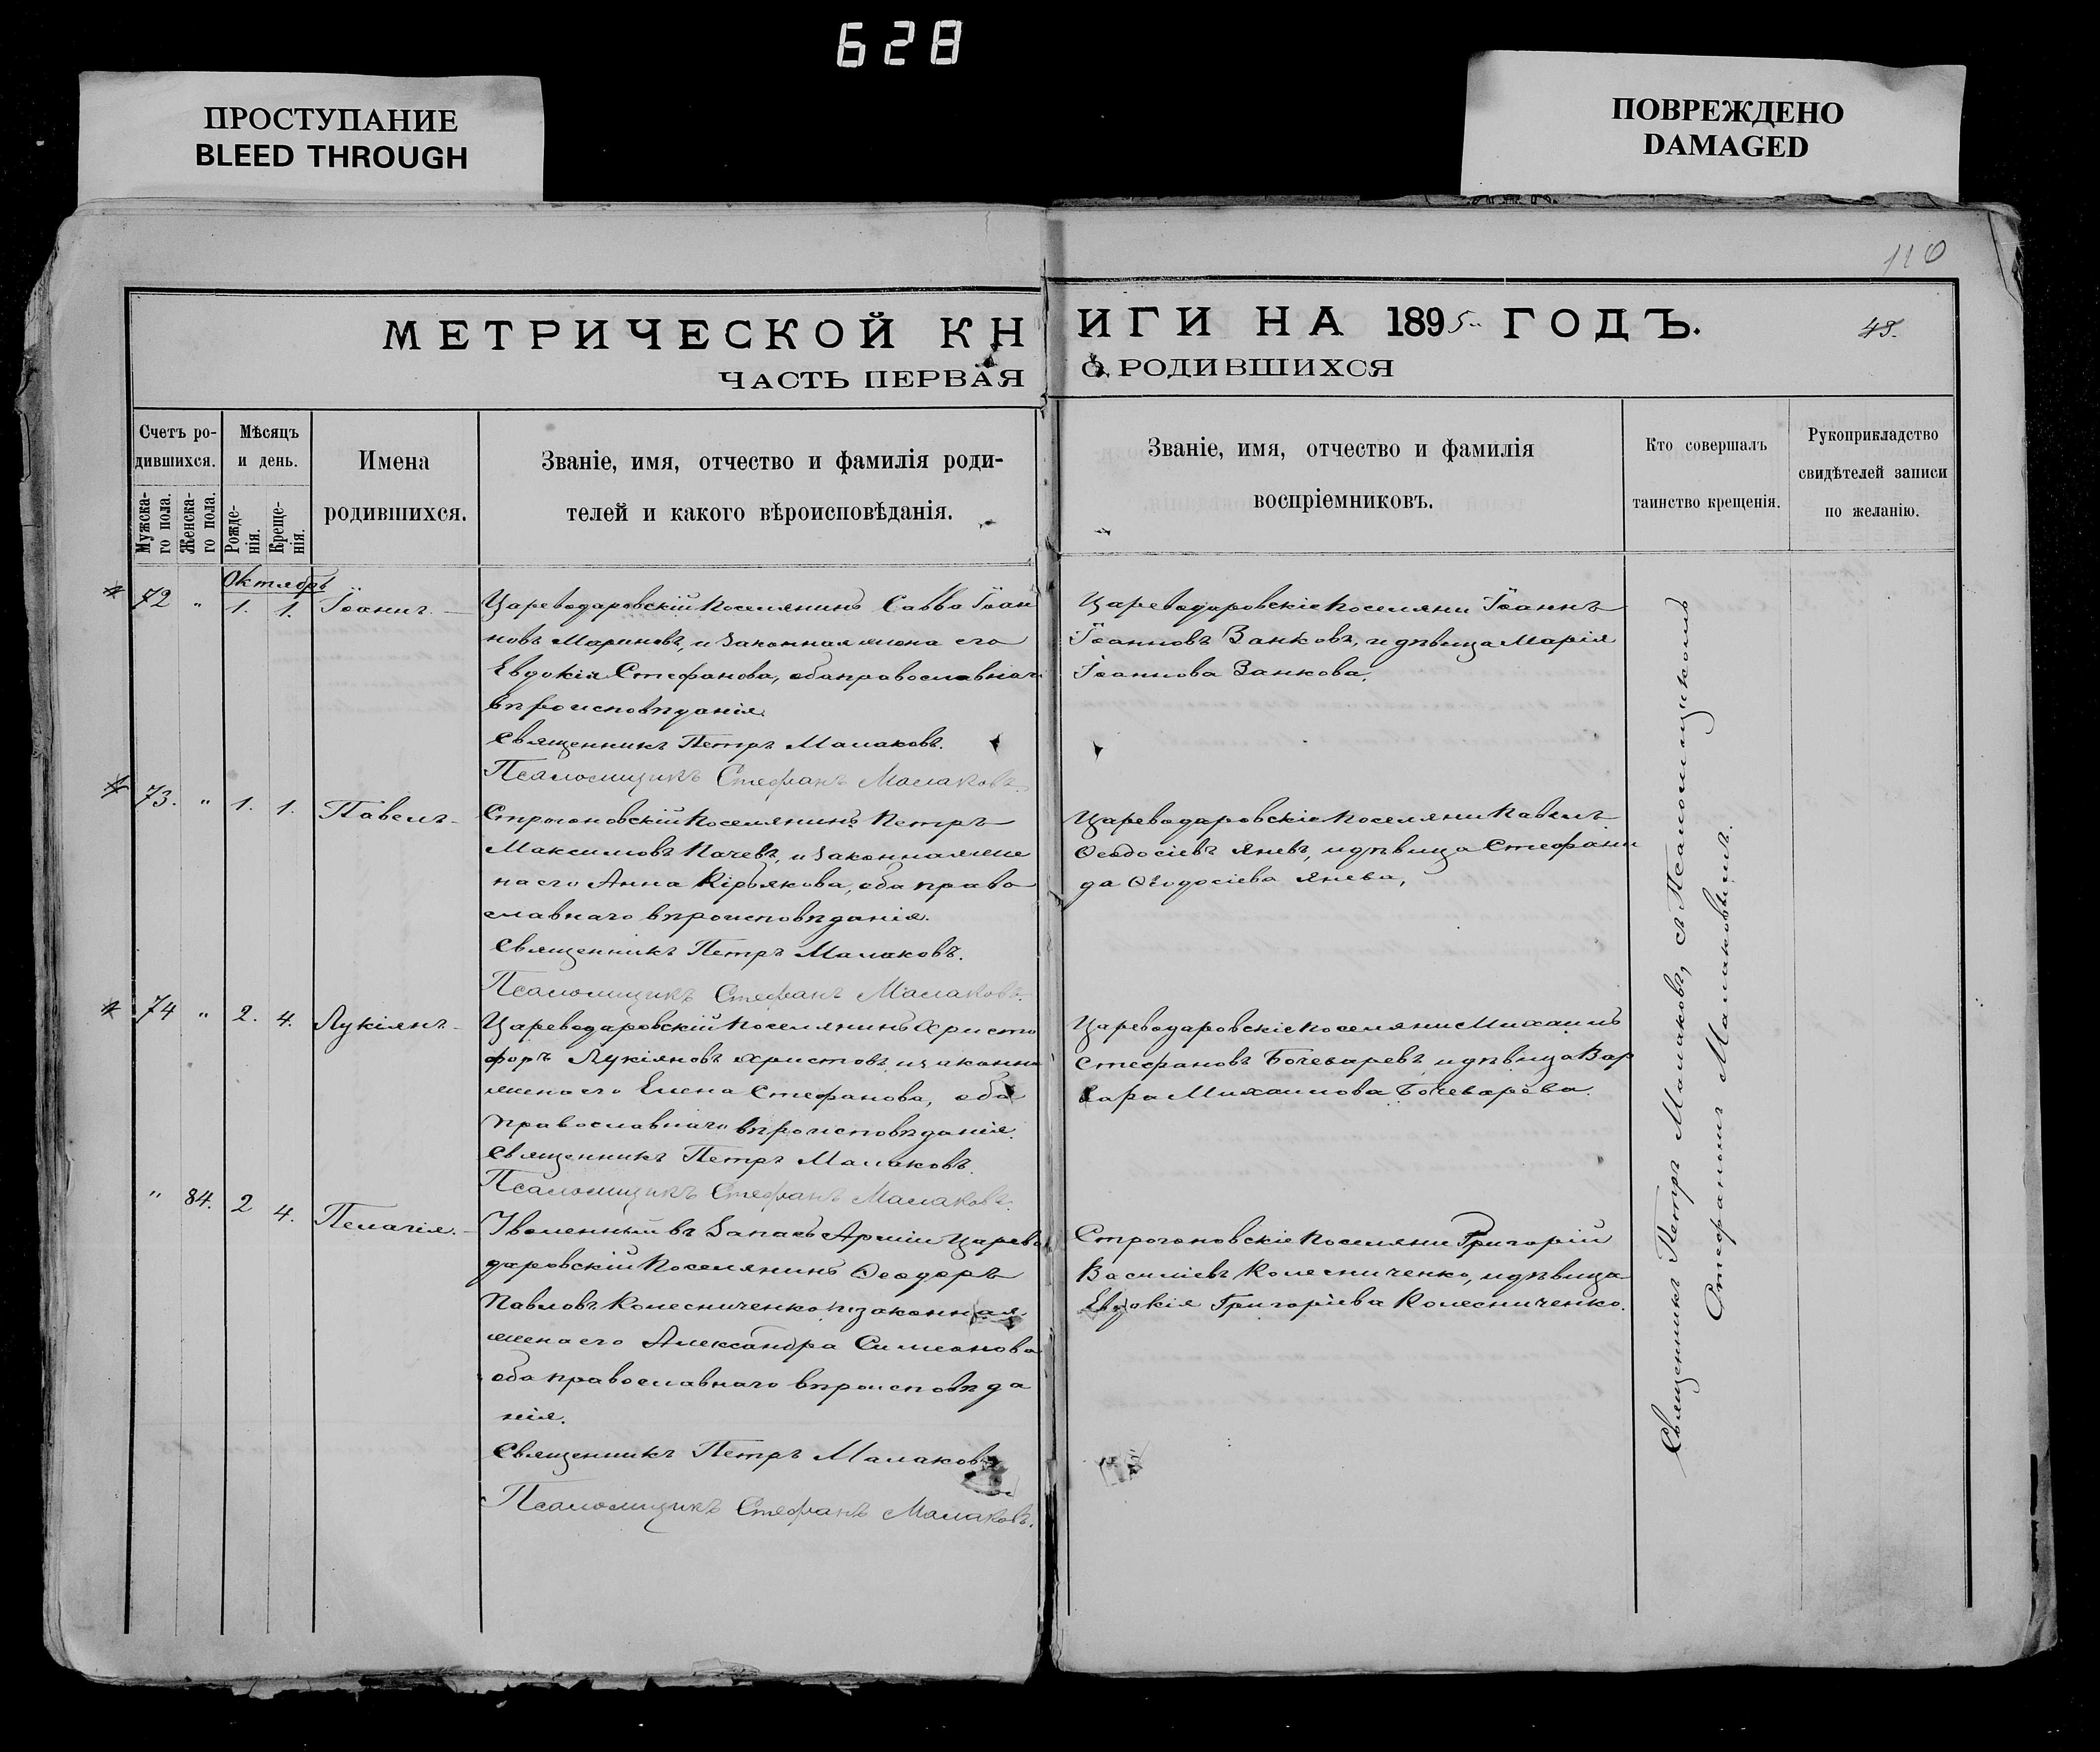 628
ПРОСТУПАНИЕ
BLEED THROUGH
ПОВРЕЖДЕНО
DAMAGED
110
МЕТРИЧЕСКОЙ КНИГИ НА 1895 ГОДЪ.
49.
ЧАСТЬ ПЕРВАЯ О РОДИВШИХСЯ
Счетъ ро-
дившихся.
Мужска-
го пола.
Женска-
го пола.
Мѣсяцъ
и день.
Рожде-
нія.
Креще-
нія.
Имена
родившихся.
Званіе, имя, отчество и фамилія роди-
телей и какого вѣроисповѣданія.
Званіе, имя, отчество и фамилія
воспріемниковъ.
Кто совершалъ
таинство крещенія.
Рукоприкладство
свидѣтелей записи
по желанію.
Октябрь
72 " 1. 1. Іоаннъ.
Цареводаровскій поселянинъ Савва Іоан
новъ Мариновъ, и законная жена его
Евдокія Стефанова, оба православнаго
вѣроисповѣданія.
Священникъ Петръ Малаковъ.
Псаломщикъ Стефанъ Малаковъ.
Цареводаровскіе поселяни Іоаннъ
Іоанновъ Занковъ, и дѣвица Марія
Іоаннова Занкова.
73. " 1. 1. Павелъ
Строгоновскій поселянинъ Петръ
Максимовъ Пачевъ, и законная же
на его Анна Кірьякова, оба право
славнаго вѣроисповѣданія.
Священникъ Петръ Малаковъ.
Псаломщикъ Стефанъ Малаковъ.
Цареводаровскіе поселяни Павелъ
Ѳеодосіевъ Яневъ, и дѣвица Стефани
да Ѳеодосіева Янева,
74 " 2. 4. Лукіянъ
Цареводаровскій поселянинъ Христо
форъ Лукіяновъ Христовъ, и законна
жена его Елена Стефанова, оба
православнаго вѣроисповѣданія.
Священникъ Петръ Малаковъ.
Псаломщикъ Стефанъ Малаковъ.
Цареводаровскіе поселяни Михаилъ
Стефановъ Бочеваревъ, и дѣвица Вар
вара Михаилова Бочеварева.
" 84. 2 4. Пелагія.
Уволенный въ запасъ Арміи Царево
даровскій поселянинъ Ѳеодоръ
Павловъ Колесниченко, и законная
жена его Александра Симеонова
оба православнаго вѣроисповѣда
нія.
Священникъ Петръ Малаковъ
Псаломщикъ Стефанъ Малаковъ.
Строгоновскіе поселяни Григорій
Василіевъ Колесниченко, и дѣвица
Евдокія Григоріева Колесниченко.
Священникъ Петръ Малаковъ, съ Псаломщикомъ
Стефаномъ Малаковымъ.